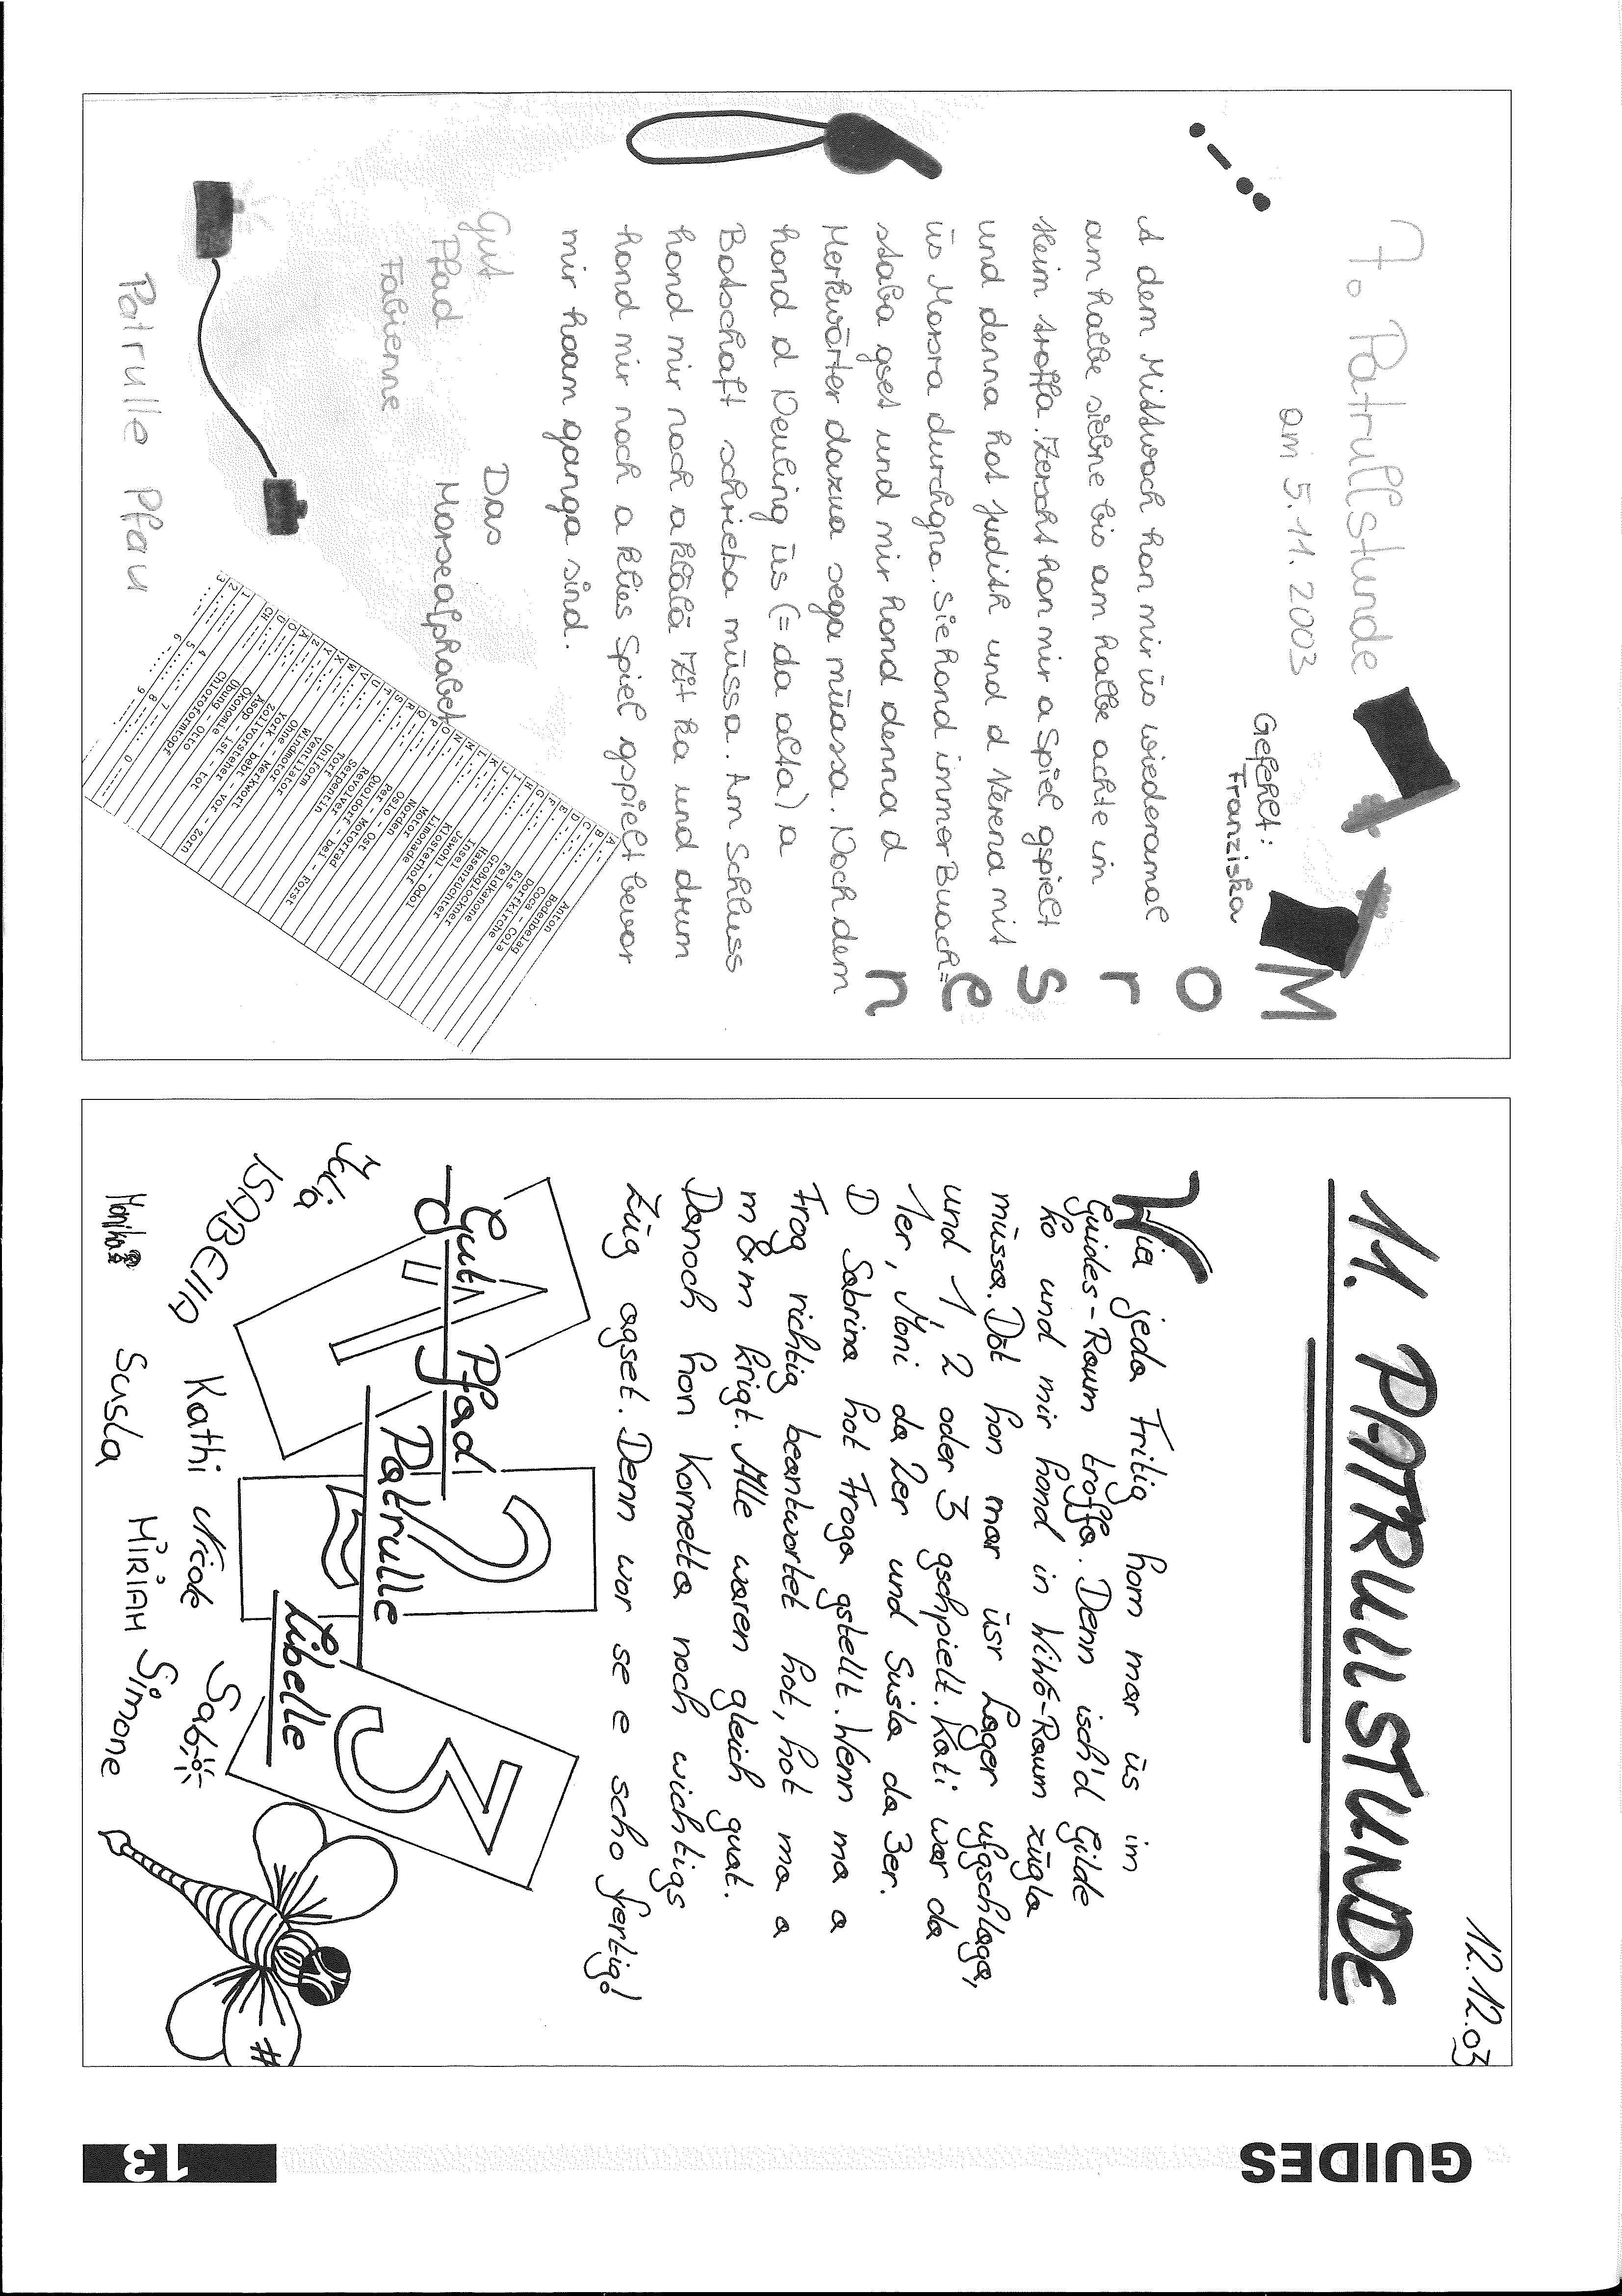 7. Patrullstunde
am 5.11.2003
Gefehlt:
Franziska
Morsen
A dem Mittwoch hon mir üs wiederamol
am halbe siebne bis am halbe achte in
Heim troffa. Zerscht hon mir a Spiel gspielt
und denna hot Judith und d Verena mit
üs Morsra durchgno. Sie hond immer Buach=
staba gset und mir hond denna d
Merkwörter dazua sega müassa. Noch dem
hond d Neuling üs (= da alta) a
Botschaft schrieba müssa. Am Schluss
hond mir noch a klälä Zit ka und drum
hond mir noch a klies Spiel gspielt bevor
mir hoam ganga sind.
Gut
Pfad
Fabienne
Das
Morsealphabet
A Anton
B Bodenbelag
C Coca - Cola
D Dorfkirche
E Eis
F Feldkanone
G Großglockner
H Hasenzüchter
I Insel
J Jawohl - Odol
K Klosterhof
L Limonade
M Motor
N Norden
O Oslo - Ost
P Per - Motorrad
Q Quoldorf - bei - Forst
R Revolver
S Serpentin
T Torf
U Uniform
V Ventilator
W Windmotor
X
Y York - Merkwort
Z Zollvorsteher
Ä Äsop - ist - vor - Zorn
Ö Ökonomie - ist - tot
Ü Übung - Otto
CH Chloroformtopf
1 4 7 0
2 5 8
3 6 9
Patrulle Pfau
11. PATRULLSTUNDE
12.12.03
Wia jeda Fritig hom mar üs im
Guides-Raum troffa. Denn isch'd Gilde
ko und mir hond in WiWö-Raum zügla
müssa. Dot hon mar üsr Lager ufgschlaga,
und 1, 2 oder 3 gschpielt. Kati war da
1er, Moni da 2er und Susla da 3er.
D Sabrina hot Froga gstellt. Wenn ma a
Frog richtig beantwortet hot, hot ma a
m&m krigt. Alle waren gleich guat.
Danoch hon Kornetta noch wichtigs
Züg agset. Denn wor se e scho fertig!
1 2 3
Gut Pfad
Patrulle
Libelle
Julia
ISABELLA
Kathi
Nicole
Sab
Monika
Susla
MIRIAM
Simone
GUIDES
13